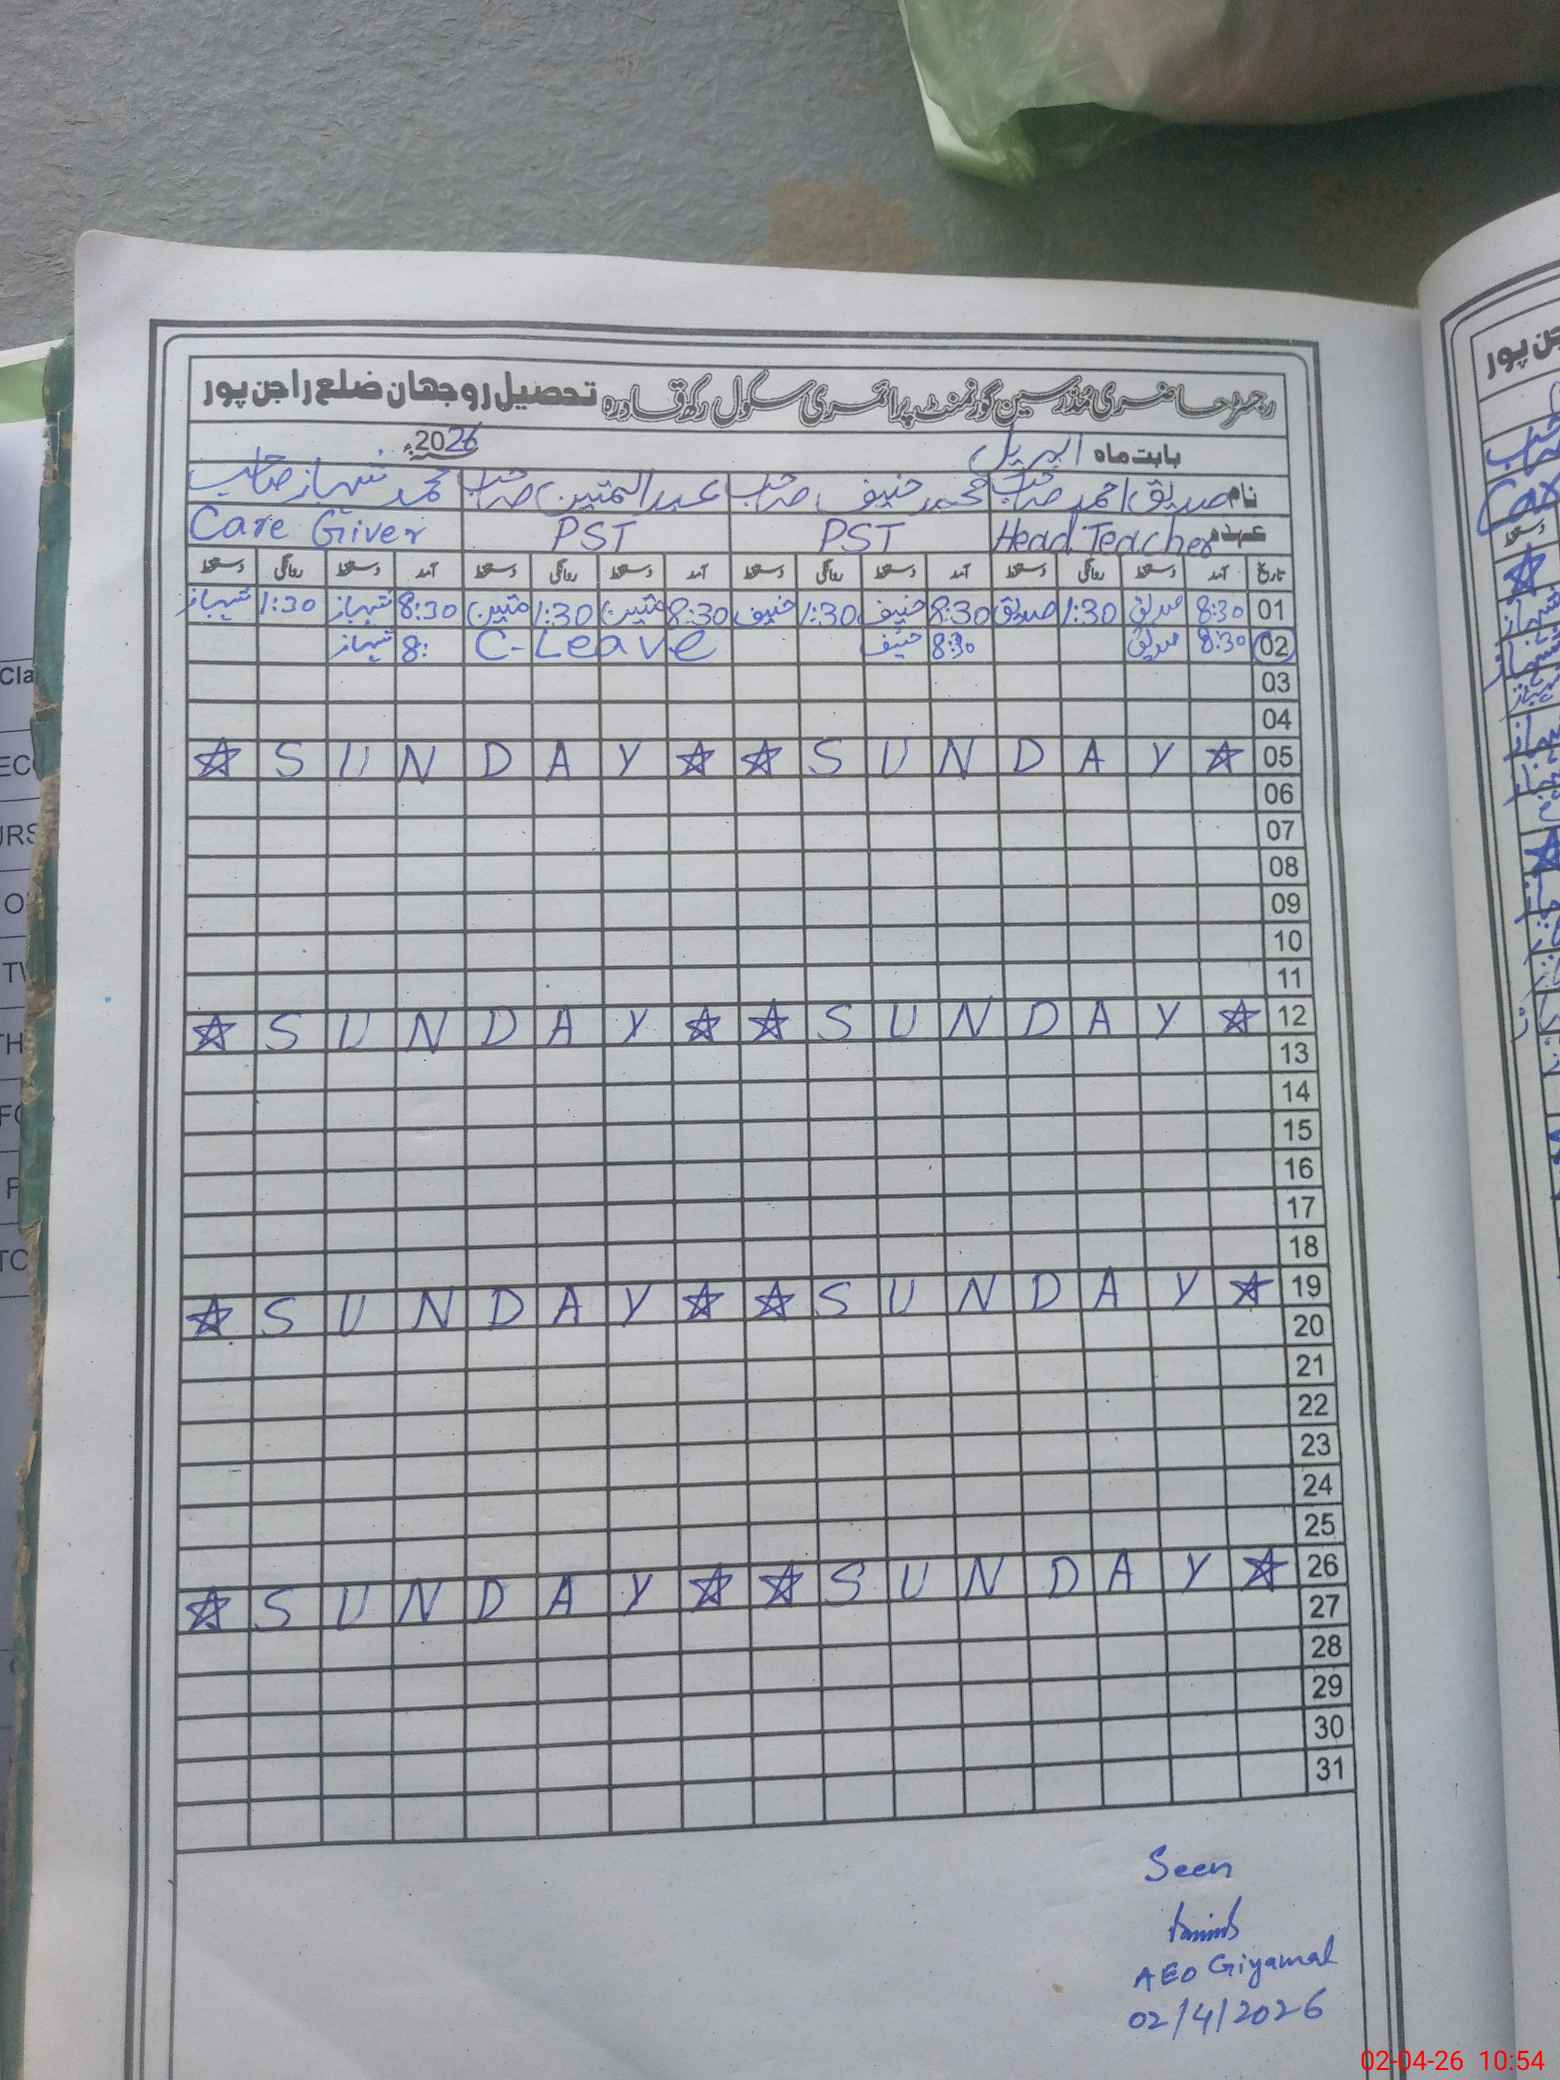 رجسٹر حاضری مدرسین گورنمنٹ پرائمری سکول رکھ قادرہ تحصیل روجھان ضلع راجن پور
بابت ماہ اپریل 2026ء
نام صدیق احمد صاحب محمد حنیف صاحب عبدالمتین صاحب محمد شہباز صاحب
عہدہ Head Teacher PST PST Care Giver
تاریخ آمد دستخط روانگی دستخط آمد دستخط روانگی دستخط آمد دستخط روانگی دستخط آمد دستخط روانگی دستخط
01 8:30 صدیق 1:30 صدیق 8:30 حنیف 1:30 حنیف 8:30 متین 1:30 متین 8:30 شہباز 1:30 شہباز
02 8:30 صدیق 8:30 حنیف C-Leave 8: شہباز
03
04
05 ☆ S U N D A Y ☆ ☆ S U N D A Y ☆
06
07
08
09
10
11
12 ☆ S U N D A Y ☆ ☆ S U N D A Y ☆
13
14
15
16
17
18
19 ☆ S U N D A Y ☆ ☆ S U N D A Y ☆
20
21
22
23
24
25
26 ☆ S U N D A Y ☆ ☆ S U N D A Y ☆
27
28
29
30
31
Seen
AEO Giyamal
02/4/2026
02-04-26 10:54